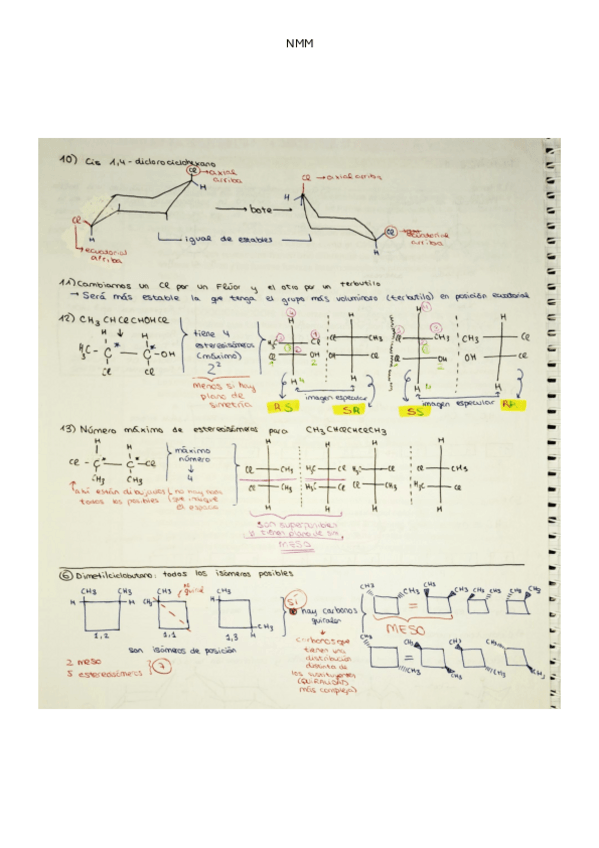 NMM
10) Cis 1,4-diclorociclohexano
Cl → axial arriba
H
Cl → axial arriba
H
bote
Cl
H
→ ecuatorial arriba
igual de estables
Cl → ecuatorial arriba
H
11) Cambiamos un Cl por un Flúor y el otro por un terbutilo
→ Será más estable la que tenga el grupo más voluminoso (terbutilo) en posición ecuatorial
12) CH3 CHClCHOHCl
H H
H3C - C* - C* - OH
Cl Cl
tiene 4 estereoisómeros (máximo)
2²
menos si hay plano de simetría
H H H H
H3C Cl Cl CH3 Cl CH3 CH3 Cl
Cl OH Cl OH OH Cl
H H H H
imagen especular
imagen especular
RS SR SS RR
13) Número máximo de estereoisómeros para CH3CHClCHClCH3
H H
Cl - C* - C* - Cl
CH3 CH3
máximo número
↓
4
así están dibujados todos los posibles
no hay nada que indique el espacio
H H H H
Cl CH3 H3C Cl H3C Cl Cl CH3
Cl CH3 H3C Cl Cl CH3 H3C Cl
H H H H
son superponibles
y tienen plano de sim,
MESO
6 Dimetilciclobutano: todos los isómeros posibles
CH3 CH3 CH3 CH3
H H CH3 H
1,2 1,1 1,3
CH3
son isómeros de posición
2 meso
5 estereoisómeros
7
sí
hay carbonos quirales
carbonos que tienen una distribución distinta de los sustituyentes
(QUIRALIDAD más compleja)
CH3 CH3 CH3 CH3 CH3 CH3
=
MESO
CH3 CH3 CH3
=
CH3 CH3 CH3 CH3